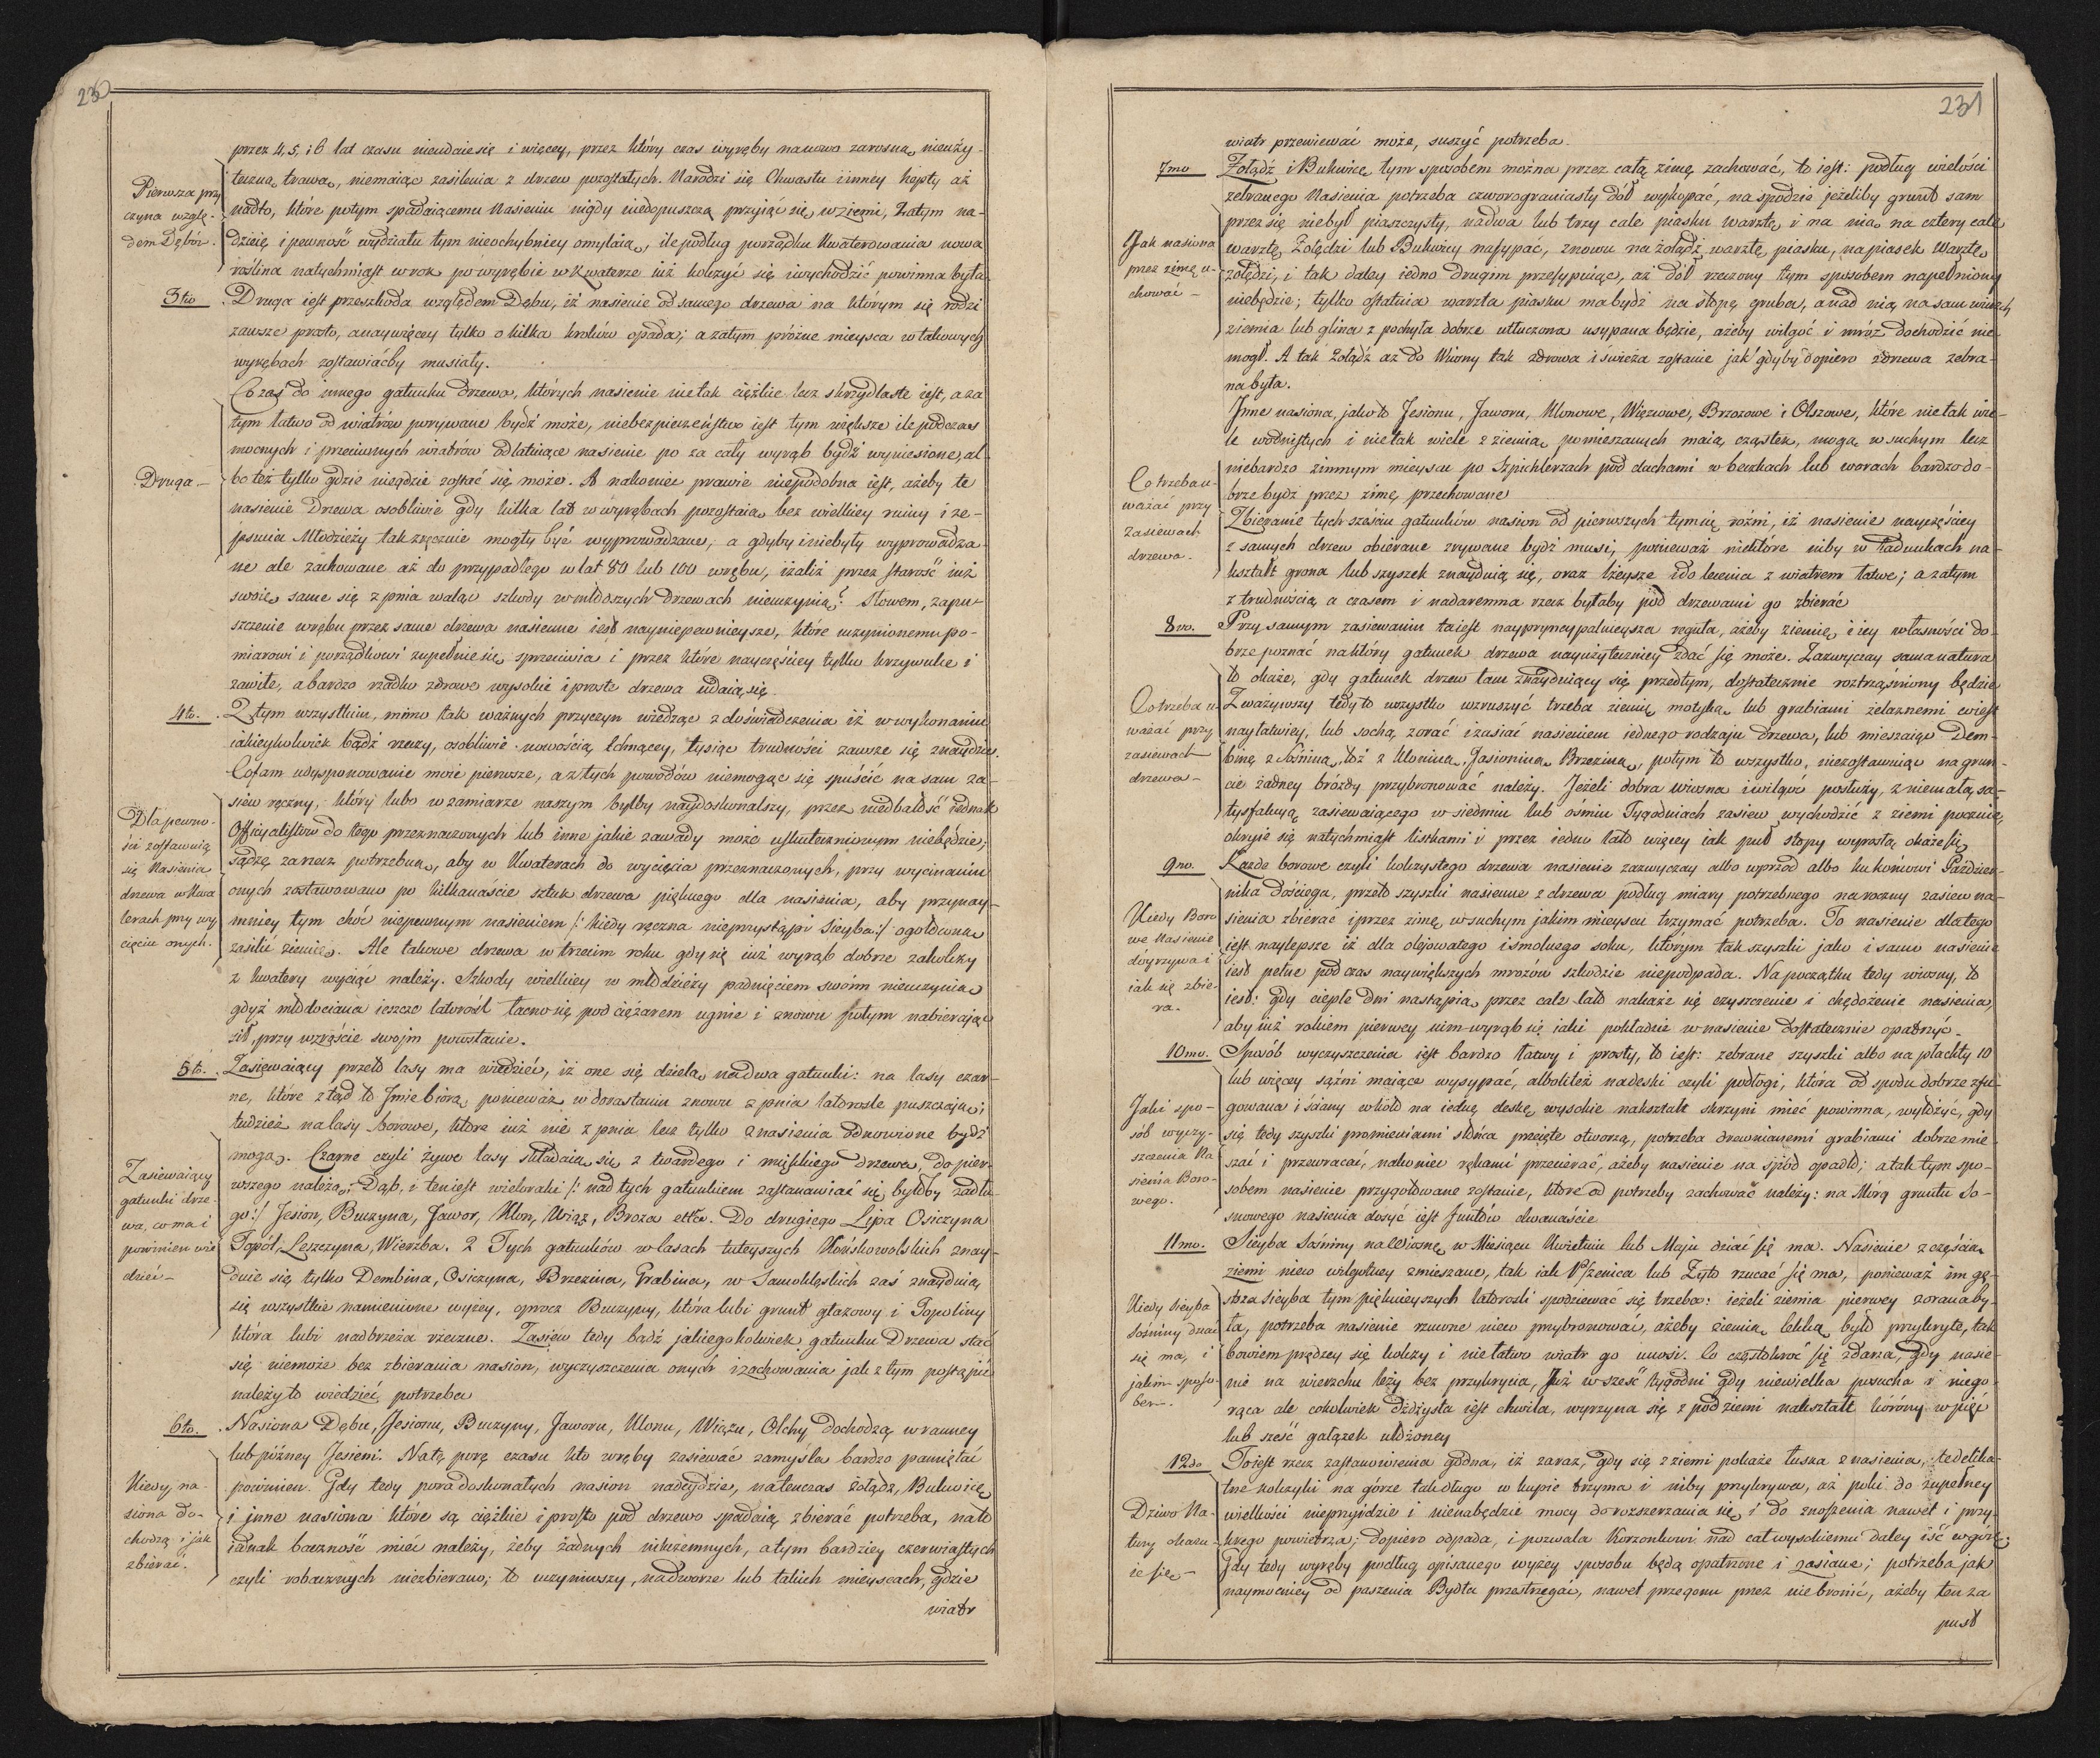 230
przez 4, 5, i 6 lat czasu nieudaie się i więcey, przez który czas wyręby nanowo zarosną nieuży-
Pierwsza przy
czyna wzglę-
dem Dębów.
teczną trawą, niemaiąc zasilenia z drzew pozostałych. Narodzi się Chwastu i inney kępty aż
nadto, które potym spadaiącemu Nasieniu nigdy niedopuszczą przyiąć się w ziemi, Zatym na-
dzieię i pewność wydziału tym nieochybniey omylaią, ile podług porządku Kwaterowania nowa
roślina natychmiast w rok po wyrębie w Kwaterze iuż kolczyć się i wychodzić powinna była.
3tio
Druga iest przeszkoda względem Dębu, iż nasienie od samego drzewa na którym się rodzi
zawsze prosto, a naywięcey tylko o kilka kroków opada; a zatym próżne mieysca w takowych
wyrębach zostawiaćby musiały.
Druga –
Co zaś do innego gatunku drzewa, których nasienie nie tak ciężkie lecz skrzydlaste iest, a za
tym łatwo od wiatrów porywane bydź może, niebezpieczeństwo iest tym większe ile podczas
mocnych i przeciwnych wiatrów odlatuiące nasienie po za cały wyrąb bydź wyniesione, al-
bo też tylko gdzie niegdzie zostać się może. A nakoniec prawie niepodobna iest, ażeby te
nasienie Drzewa osobliwie gdy kilka lat w wyrębach pozostaią bez wielkiey ruiny i ze-
psucia Młodzieży tak zręcznie mogły być wyprowadzane, a gdyby i niebyły wyprowadza-
ne ale zachowane aż do przypadłego w lat 80 lub 100 wrębu, iżaliż przez starość iuż
swoię same się z pnia waląc szkody w młodszych drzewach nieuczynią? Słowem, zapu-
szczenie wrębu przez same drzewa nasienne iest nayniepewnieysze, które uczynionemu po-
miarowi i porządkowi zupełnie się sprzeciwia i przez które nayczęściey tylko krzywulce i
zawiłe, a bardzo rzadko zdrowe wysokie i proste drzewa udaią się.
4to.
Z tym wszystkim, mimo tak ważnych przyczyn wiedząc z doświadczenia iż w wykonaniu
iakieykolwiek bądź rzeczy, osobliwie nowością tchnącey, tysiąc trudności zawsze się znaydzie.
Cofam udysponowanie moie pierwsze, a z tych powodów niemogąc się spuścić na sam za-
Dla pewno-
ści zostawuią
się Nasienia
drzewa w Kwa
terach przy wy
cięciu onych.
siew ręczny, który lubo w zamiarze naszym byłby naydoskonalszy, przez niedbałość iednak
Officyalistów do tego przeznaczonych lub inne jakie zawady może uskutecznionym niebędzie,
sądzę za rzecz potrzebną, aby w Kwaterach do wycięcia przeznaczonych, przy wycinaniu
onych zostawowano po kilkanaście sztuk drzewa pięknego dla nasienia, aby przynay-
mniey tym choć niepewnym nasieniem /: kiedy ręczna nieprzystąpi Sieyba :/ ogołoconą
zasilić ziemię. Ale takowe drzewa w trzecim roku gdy się iuż wyrąb dobrze zakolczy
z kwatery wyciąć należy. Szkody wielkiey w młodzieży padnięciem swoim nieuczynią
gdyż młodociana ieszcze latorośl łacno się pod ciężarem ugnie i znowu potym nabieraiąc
sił, przy wzroście swoim powstanie.
5to.
Zasiewaiący przeto lasy ma wiedzieć, iż one się dzielą na dwa gatunki: na lasy czar-
ne, które ztąd to Jmie biorą, ponieważ w dorastaniu znowu z pnia latorośle puszczaią;
tudzież na lasy borowe, które iuż nie z pnia lecz tylko z nasienia odnowione bydź
Zasiewaiący
gatunki drze-
wa, co ma i
powinien wie
dzieć –
mogą. Czarne czyli żywe lasy składaią się z twardego i miękkiego drzewa, do pier-
wszego należą: Dąb, i ten iest wieloraki /: nad tych gatunkiem zastanawiać się byłoby za dłu-
go :/ Jesion, Buczyna, Jawor, Klon, Wiąz, Broza etta. Do drugiego Lipa Osiczyna
Topól, Leszczyna, Wierzba. Z Tych gatunków w lasach tuteyszych Końskowolskich znay-
duie się tylko Dembina, Osiczyna, Brzezina, Grabina, w Samoklęskich zaś znayduią
się wszystkie namienione wyżey, oprocz Buczyny, która lubi grunt głazowy i Topoliny
która lubi nadbrzeża rzeczne. Zasiew tedy bądź jakiegokolwiek gatunku Drzewa stać
się niemoże bez zbierania nasion, wyczyszczenia onych i zachowania jak z tym postąpić
należy to wiedzieć potrzeba
6to.
Nasiona Dębu, Jesionu, Buczyny, Jaworu, Klonu, Wiązu, Olchy dochodzą w ranney
lub pózney Jesieni. Na tę porę czasu kto wręby zasiewać zamyśla bardzo pamiętać
Kiedy na-
siona do-
chodzą i jak
zbierać.
powinien. Gdy tedy pora doskonałych nasion nadeydzie, natenczas żołądź, Bukwicę
i inne nasiona które są ciężkie i prosto pod drzewo spadaią zbierać potrzeba, na to
iednak baczność mieć należy, żeby żadnych nikczemnych, a tym bardziey czerwiastych
czyli robacznych niezbierano; to uczyniwszy, na dworze lub takich mieyscach, gdzie
wiatr
231
wiatr przewiewać może, suszyć potrzeba.
7mo
Żołądź i Bukwicę tym sposobem można przez całą zimę zachować, to iest: podług wielości
zebranego Nasienia potrzeba czworograniasty dół wykopać, na spodzie jeżeliby grunt sam
Jak nasiona
przez zimę u-
chować –
przez się niebył piaszczysty, na dwa lub trzy cale piasku warztę, i na nią na cztery cale
warztę Żołędzi lub Bukwicy nasypać, znowu na żołądź warztę piasku, na piasek Warztę
żołędzi, i tak daley iedno drugim przesypuiąc, aż dół rzeczony tym sposobem napełniony
niebędzie; tylko ostatnia warzta piasku ma bydź na stopę gruba, a nad nią na sam wierzch
ziemia lub glina z pochyła dobrze utłuczona usypana będzie, ażeby wilgoć i mróz dochodzić nie
mogł. A tak Żołądź aż do Wiosny tak zdrowa i świeża zostanie jak gdyby dopiero zdrzewa zebra-
na była.
Jnne nasiona, jako to Jesionu, Jaworu, Klonowe, Więzowe, Brzozowe i Olszowe, które nie tak wie-
le wodnistych i nie tak wiele z ziemią pomieszanych maią cząstek, mogą w suchym lecz
Co trzeba u-
ważać przy
Zasiewach
drzewa.
niebardzo zimnym mieyscu po Szpichlerzach pod dachami w beczkach lub worach bardzo do-
brze bydź przez zimę przechowane
Zbieranie tych sześciu gatunków nasion od pierwszych tym się rożni, iż nasienie nayczęściey
z samych drzew obierane zrywane bydź musi, ponieważ niektóre niby w ładunkach na-
kształt grona lub szyszek znayduią się, oraz lżeysze i do lecenia z wiatrem łatwe; a zatym
z trudnością a czasem i nadaremna rzecz byłaby pod drzewami go zbierać
8vo.
Przy samym zasiewaniu ta iest nayprzyncypalnieysza reguła, ażeby ziemię i iey własności do-
brze poznać na który gatunek drzewa nayużyteczniey zdać się może. Zazwyczay sama natura
Co trzeba u
ważać przy
zasiewach
drzewa –
to okaże, gdy gatunek drzew tam znayduiący się przedtym, dostatecznie roztrząśniony będzie
Zważywszy tedy to wszystko wzruszyć trzeba ziemię motyką lub grabiami żelaznemi co iest
nayłatwiey, lub sochą zorać i zasiać nasieniem iednego rodzaju drzewa, lub mieszaiąc Dem-
binę z Sośniną, toż z Kloniną, Jasioniną Brzeziną, potym to wszystko, niezostawuiąc na grun-
cie żadney brózdy przybronować należy. Jeżeli dobra wiosna i wilgoć posłuży, z niemałą sa-
tysfakcyą zasiewaiącego w siedmiu lub ośmiu Tygodniach zasiew wychodzić z ziemi pocznie,
okryie się natychmiast listkami i przez iedno lato więcey iak puł stopy wyrosłą okaże się
9no.
Każde borowe czyli kolczystego drzewa nasienie zazwyczay albo wprzód albo ku końcowi Paździer-
Kiedy Boro
we Nasienie
doyrzywa i
iak się zbie-
ra.
nika dościega, przeto szyszki nasienne z drzewa podług miary potrzebnego na roczny zasiew na-
sienia zbierać i przez zimę w suchym jakim mieyscu trzymać potrzeba. To nasienie dlatego
iest naylepsze iż dla olejowatego i smolnego soku, którym tak szyszki jako i samo nasienie
iest pełne pod czas naywiększych mrozów szkodzie niepodpada. Na początku tedy wiosny, to
iest: gdy ciepłe dni nastąpią przez całe lato nakaże się czyszczenie i chędożenie nasienia,
aby iuż rokiem pierwey nim wyrąb się iaki pokładnie w nasienie dostatecznie opatrzyć.
10mo.
Sposób wyczyszczenia iest bardzo łatwy i prosty, to iest: zebrane szyszki albo na płachty 10
Jaki spo-
sób wyczy-
szczenia Na
sienia Boro-
wego.
lub więcey sążni maiące wysypać, albo li też na deski czyli podłogi, która od spodu dobrze zfu-
gowana i ściany wkoło na iednę deskę wysokie nakształt skrzyni mieć powinna, wyłożyć, gdy
się tedy szyszki promieniami słońca przeięte otworzą, potrzeba drewnianemi grabiami dobrze mie-
szać i przewracać, nakoniec rękami przecierać, ażeby nasienie na spód opadło; a tak tym spo-
sobem nasienie przygotowane zostanie, które od potrzeby zachować należy: na Mórg gruntu So-
snowego nasienia dosyć iest funtów dwanaście
11mo.
Sieyba Sośniny na Wiosnę w Miesiącu Kwietniu lub Maju dziać się ma. Nasienie z częścią
ziemi nieco wilgotney zmieszane, tak iak Pszenica lub Żyto rzucać się ma, ponieważ im gę-
Kiedy Sieyba
Sośniny dziać
się ma, i
jakim sposo-
bem.
stsza sieyba tym pięknieyszych latorośli spodziewać się trzeba: ieżeli ziemia pierwey zorana by-
ła, potrzeba nasienie rzucone nieco przybronować, ażeby ziemią lekką było przykryte, tak
bowiem prędzey się kolczy i nie łatwo wiatr go unosi. Co częstokroć się zdarza, gdy nasie-
nie na wierzchu leży bez przykrycia, Już w sześć tygodni gdy niewielka posucha i niego-
rąca ale cokolwiek dżdżysta iest chwila, wyrzyna się z pod ziemi nakształt koróny w pięć
lub sześć gałązek ułożoney
12do
To iest rzecz zastanowienia godna, iż zaraz, gdy się z ziemi pokaże łuska z nasienia, te delika-
Dziwo Na-
tury okazu-
ie się –
tne kolczyki na górze tak długo w kupie trzyma i niby przykrywa, aż poki do zupełney
wielkości nieprzyidzie i nienabędzie mocy do rozszerzania się i do znoszenia nawet i przy-
krego powietrza; dopiero odpada, i pozwala Korzonkowi nad cal wysokiemu daley iść w górę:
Gdy tedy wyręby podług opisanego wyżey sposobu będą opatrzone i zasiane; potrzeba jak
naymocniey od paszenia Bydła przestrzegać, nawet przegonu przez nie bronić, ażeby ten za
pust